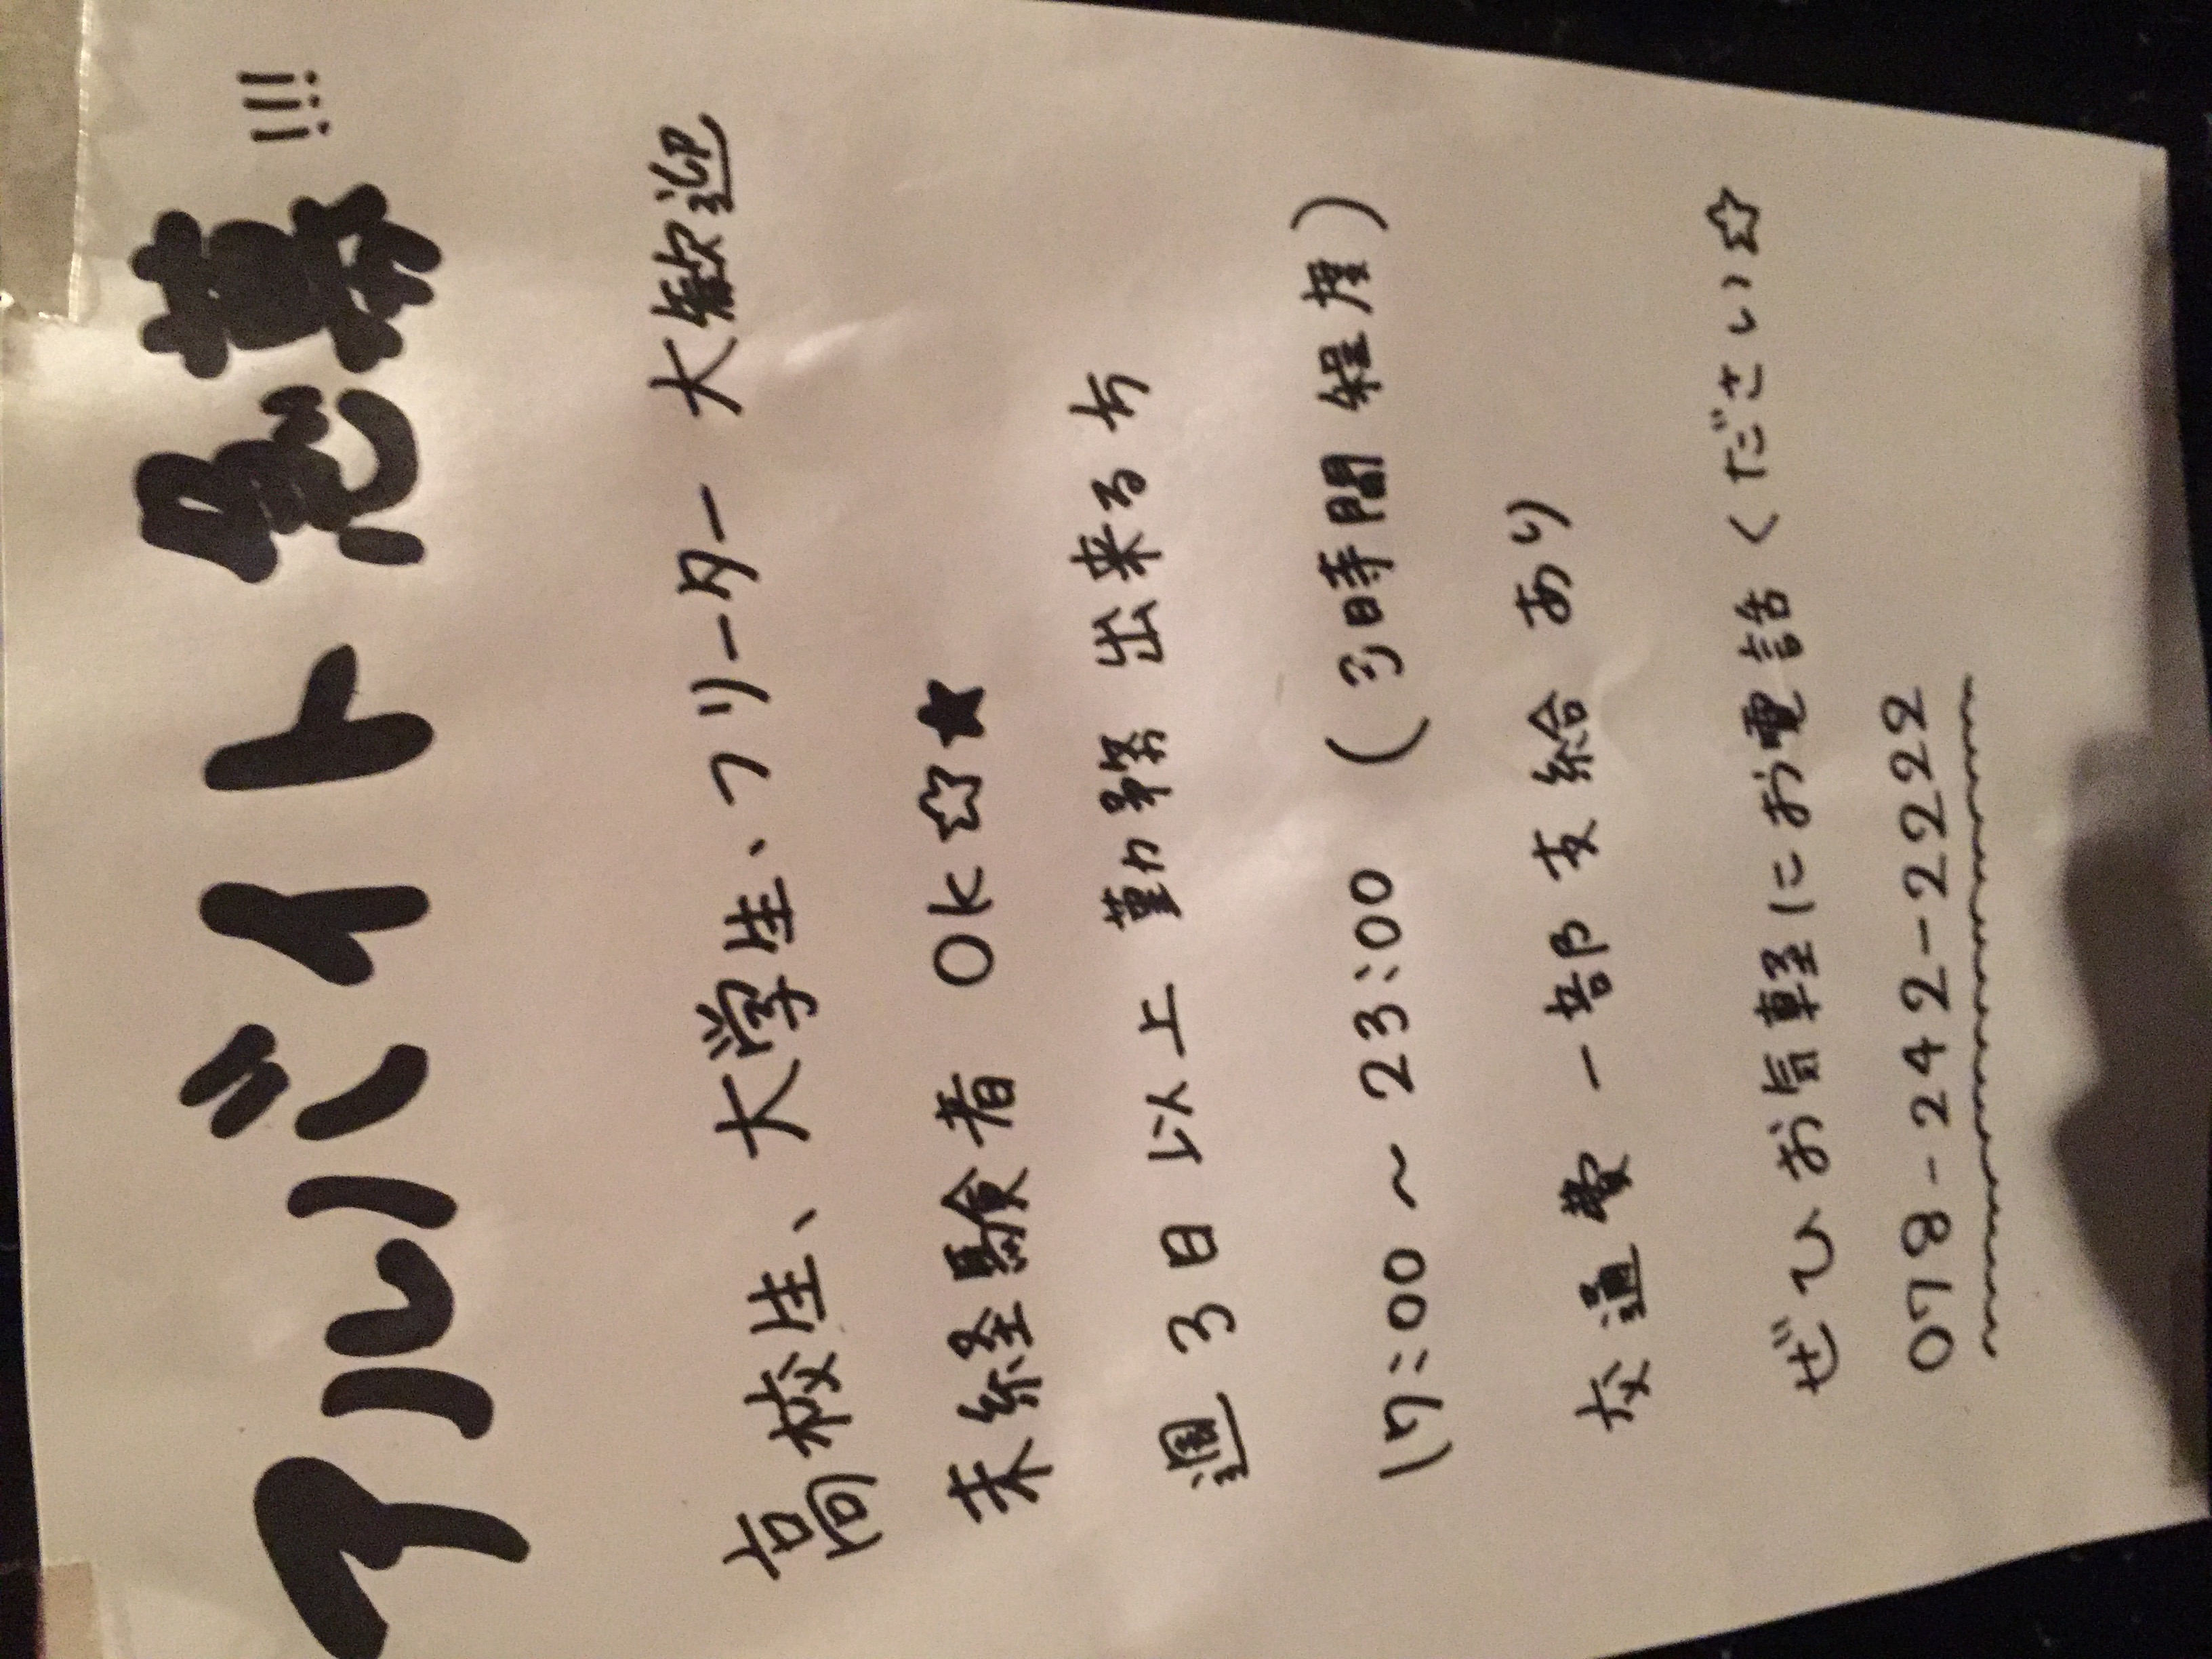 アルバイト急募!!!
高校生、大学生、フリーター 大歓迎
未経験者 OK☆★
週3日以上 勤務 出来る方
17:00~23:00 (3時間 程度)
交通費 一部 支給 あり
ぜひお気軽にお電話ください☆
078-242-2222